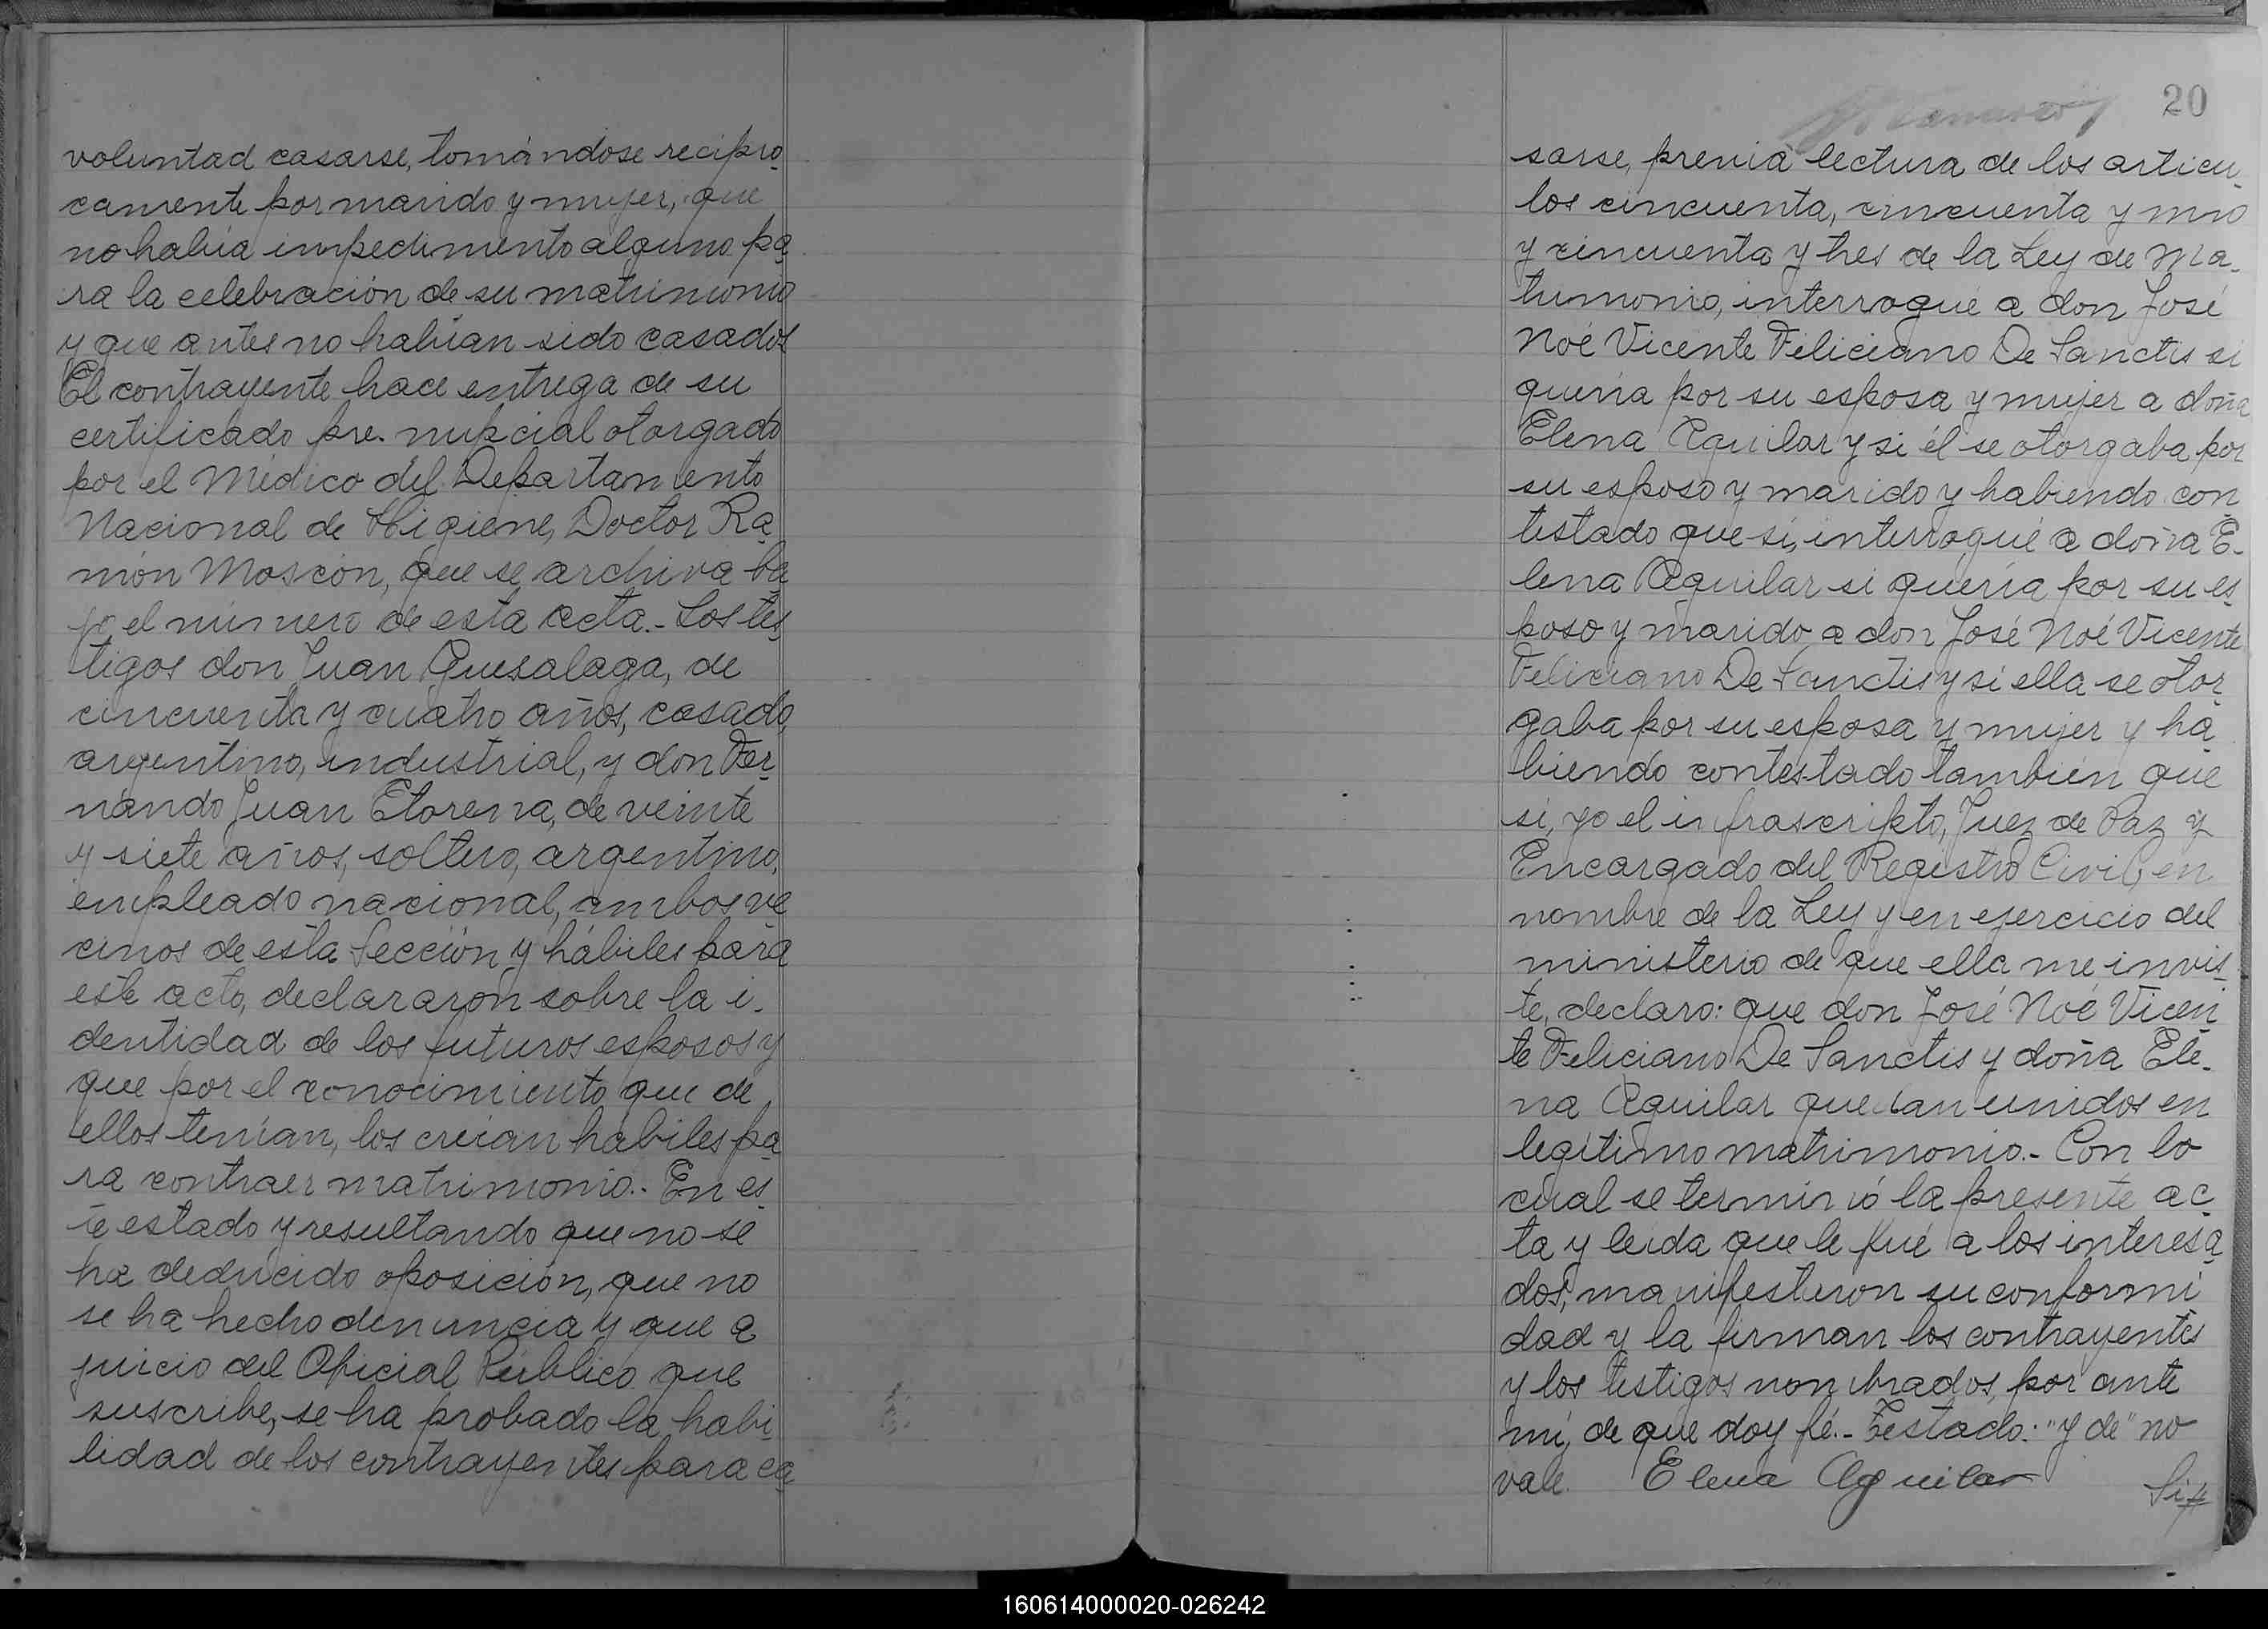 voluntad casarse, tomándose recipro
camente por marido y mujer, que
no había impedimento alguno pa
ra la celebración de su matrimonio
y que antes no habían sido casados
El contrayente hace entrega de su
certificado pre-nupcial otorgado
por el Médico del Departamento
Nacional de Higiene, Doctor Ra
món Moscón, que se archiva ba
jo el número de esta acta.- Los tes
tigos don Juan Quesalaga, de
cincuenta y cuatro años, casado,
argentino, industrial, y don Fer
nando Juan Etorena, de veinte
y siete años, soltero, argentino,
empleado nacional, ambos ve
cinos de esta Sección y hábiles para
este acto, declararon sobre la i-
dentidad de los futuros esposos y
que por el conocimiento que de
ellos tenían, los creían hábiles pa
ra contraer matrimonio.- En es
te estado y resultando que no se
ha deducido oposición, que no
se ha hecho denuncia y que a
juicio del Oficial Público que
suscribe, se ha probado la habi
lidad de los contrayentes para ca
20
sarse, previa lectura de los artícu
los cincuenta, cincuenta y uno
y cincuenta y tres de la Ley de Ma-
trimonio, interrogué a don José
Noé Vicente Feliciano De Sanctis si
quería por su esposa y mujer a doña
Elena Aguilar y si él se otorgaba por
su esposo y marido y habiendo con
testado que sí, interrogué a doña E-
lena Aguilar si quería por su es
poso y marido a don José Noé Vicente
Feliciano De Sanctis y si ella se otor
gaba por su esposa y mujer y ha
biendo contestado también que
sí, yo el infrascripto, Juez de Paz y
Encargado del Registro Civil, en
nombre de la Ley y en ejercicio del
ministerio de que ella me invis
te, declaro: que don José Noé Vicen
te Feliciano De Sanctis y doña Ele-
na Aguilar quedan unidos en
legítimo matrimonio.- Con lo
cual se terminó la presente ac
ta y leída que le fué a los interesa
dos, manifestaron su conformi
dad y la firman los contrayentes
y los testigos nombrados, por ante
mí, de que doy fé.- Testado: "y de" no
vale. Elena Aguilar
160614000020-026242